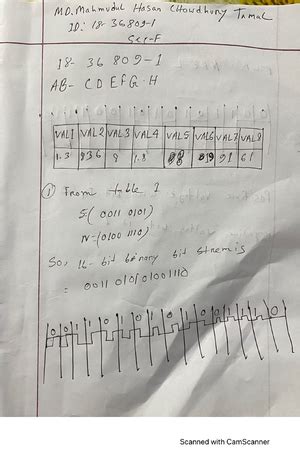 MD. Mahmudul Hasan Chowdhury Tamal
ID: 18-36809-1
Sec-F
18- 36 809-1
AB- CDEFG-H
VAL1 VAL2 VAL3 VAL4 VAL5 VAL6 VAL7 VAL8
1.3 836 8 1.8 91 61
① From table 1
5( 0011 0101)
N-(0100 1110)
So, 16-bit binary bit strem is
= 0011 0101 01001110
0 0 1 1 0 1 0 1 0 1 0 0 1 1 1 0
Scanned with CamScanner